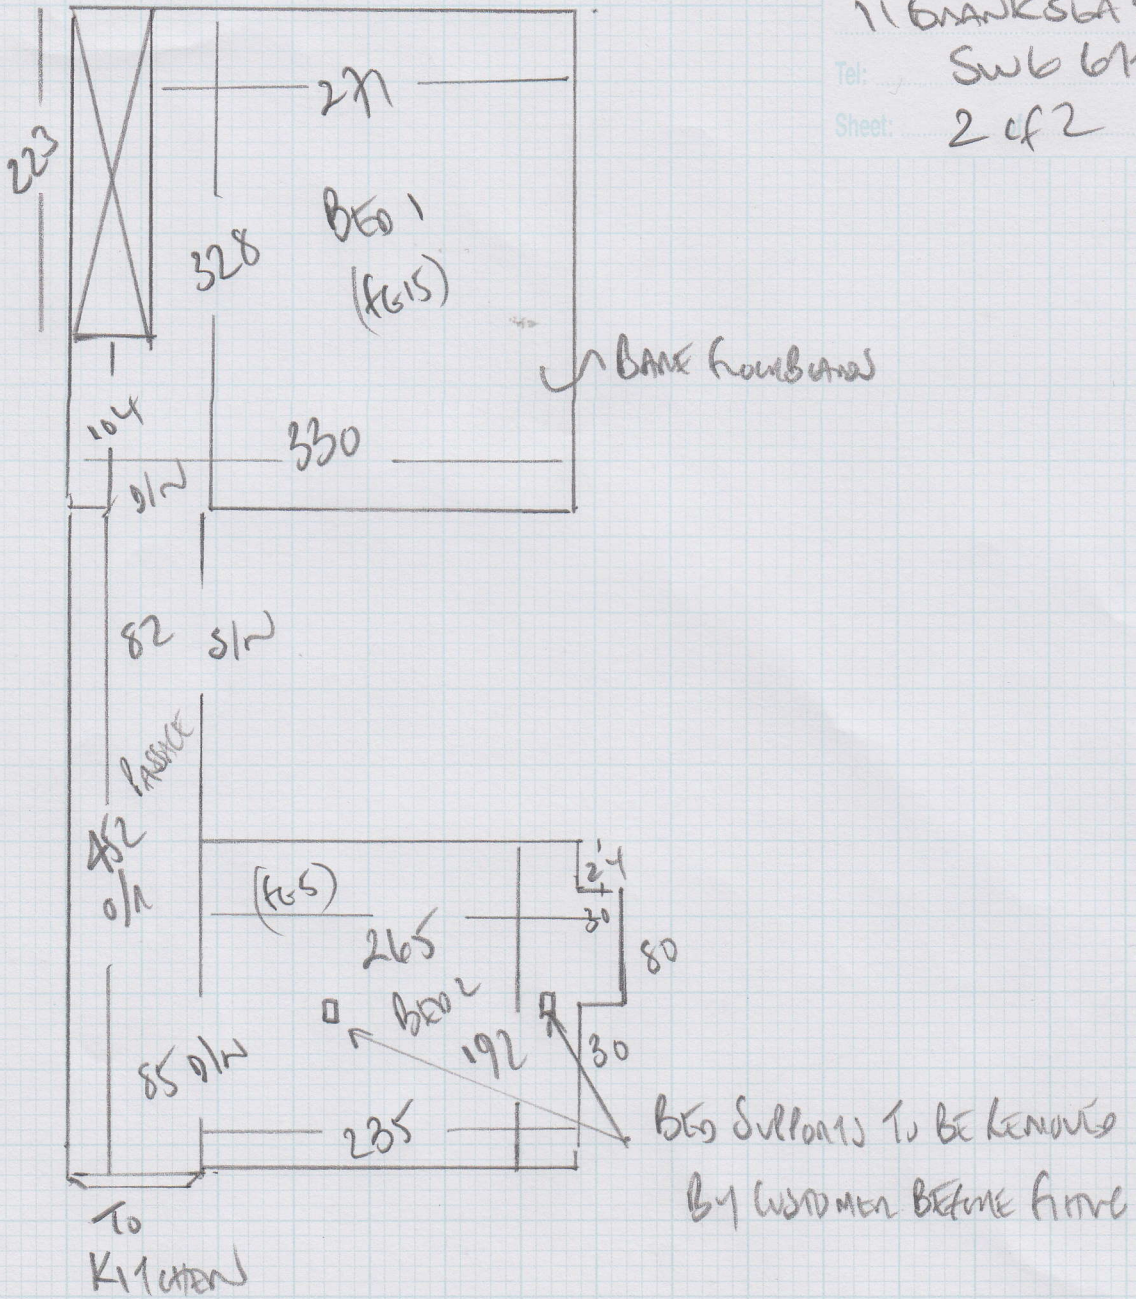 Tel: SW6
Sheet: 2 of 2
223
271
BED 1
328
BARE FLOORBOARDS
104
330
D/W
82
S/W
PASSAGE
452
O/A
24
30
265
80
BED 2
192
30
85 D/W
235
BED SUPPORTS TO BE REMOVED
BY CUSTOMER BEFORE FITTING
TO
KITCHEN